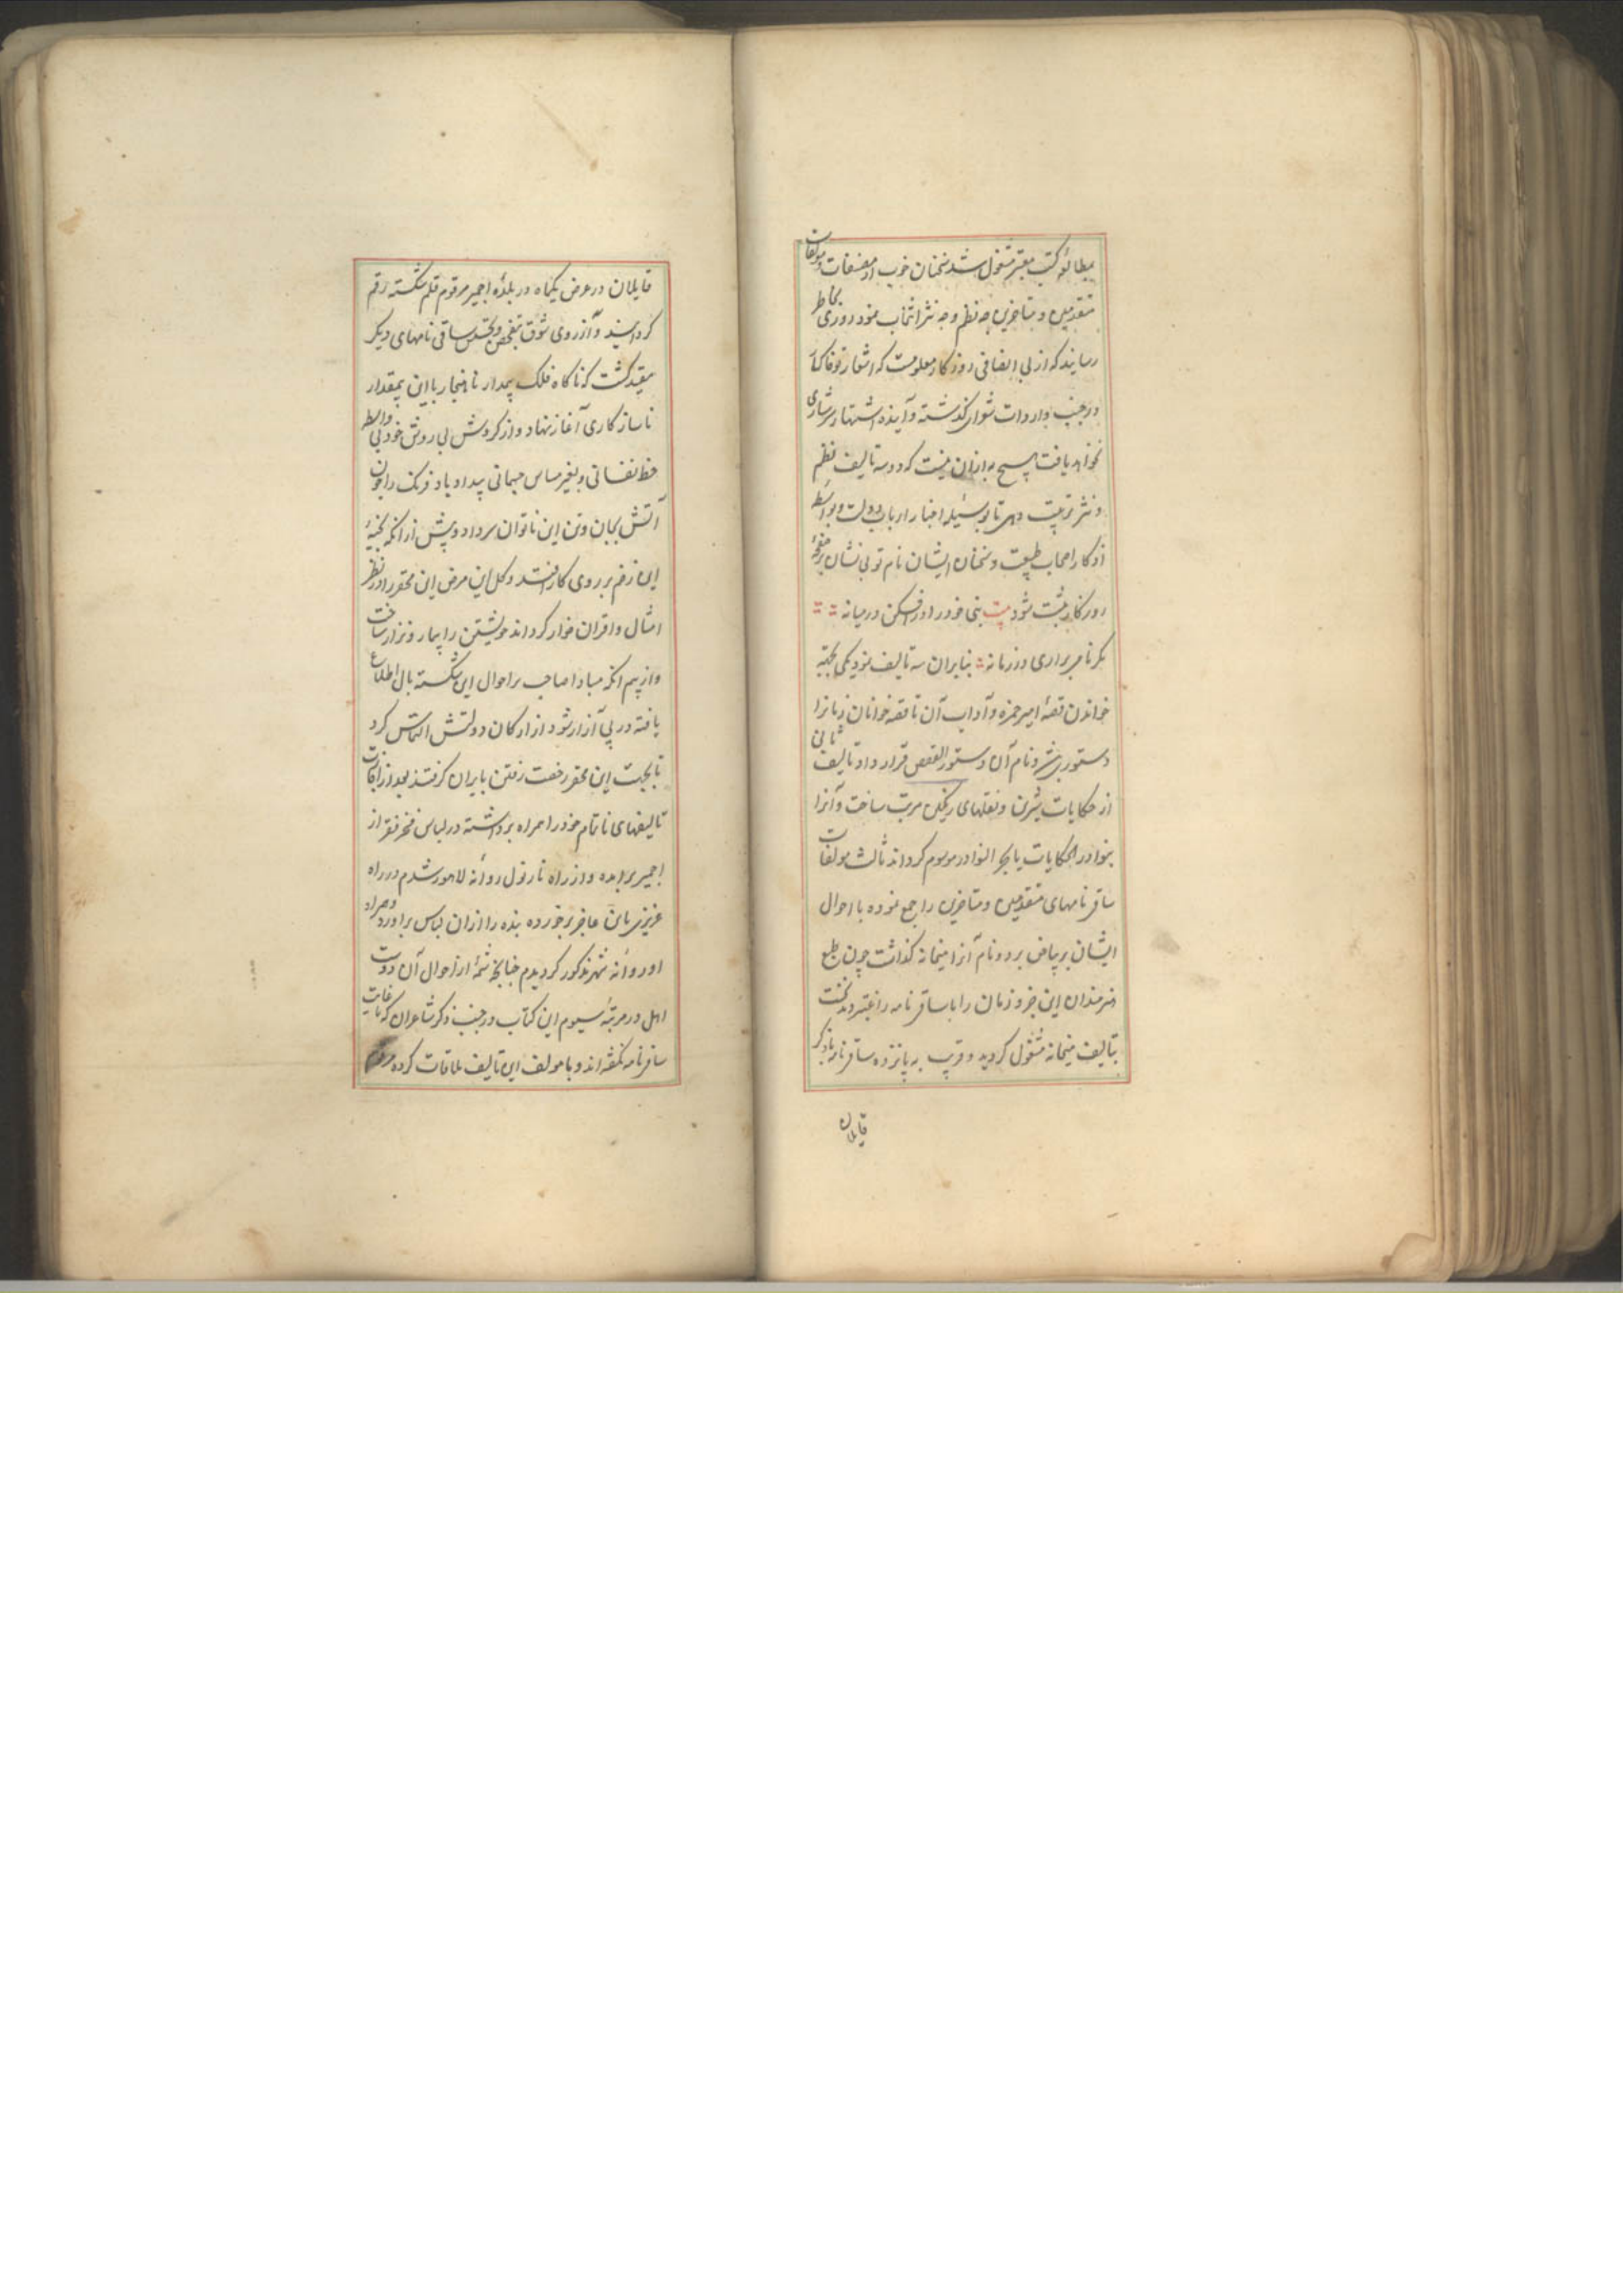 بمطالعه کتب معتبر مشغول شد سخنان خوب از مصنفات و مولفات
متقدمین و متاخرین چه نظم و چه نثر انتخاب نمود روزی بخاطر
رسانید که از بی اتفاقی روزگار معلومست که اشعار تو فاما
در جنب واردات شعرای گذشته و آینده اشتهار سرشاری
نخواهد یافت هیچ به ازان نیست که دو سه تالیف نظم
و نثر ترتیب دهی تا بوسیله اخبار ارباب دولت و بواسطه
اذکار اصحاب طبیعت و سخنان ایشان نام تو بی نشان بر صفحه
روزگار ثبت شود بیت بنی خود را درافکن در میانه
مگر نامی براری در زمانه بنابران سه تالیف نمود یکی بجهته
خواندن قصه امیر حمزه و آداب آن تا قصه خوانان زمانرا
دستوری شود نام آن دستور القصص قرار داد تالیف ثانی
از حکایات شیرین و نقلهای رنگین مرتب ساخت و آنرا
بنوادر الحکایات یا بحر النوادر موسوم گرداند ثالث مولفات
ساقی نامهای متقدمین و متاخرین را جمع نموده با احوال
ایشان بر بیاض برد و نام آنرا میخانه گذاشت چون طبع
هنرمندان این جزو زمان را با ساقی نامه راغبتر دید نخست
بتالیف میخانه مشغول گردید و قریب به پانزده ساقی نامه با ذکر
قایلان
قایلان در عرض یکماه در بلده اجمیر مرقوم قلم شکسته رقم
گردانید و از روی شوق بتفحص و تجسس ساقی نامهای دیگر
مقید گشت که ناگاه فلک بیمدار ناهنجار با این بیمقدار
ناسازگاری آغاز نهاد و از گردش بی روش خود بی واسطه
حظ نفسانی و بغیر مساس جسمانی بیداد باد فرنگ را چون
آتش بجان و تن این ناتوان سر داد و پیش از آنکه بخیه
این زخم بر روی کار افتد و گل این مرض این محقر را در نظر
امثال و اقران خوار گرداند خویشتن را بیمار و نزار ساخت
و از بیم آنکه مبادا صاحب بر احوال این شکسته بال اطلاع
یافته در پی آزار شود از ارکان دولتش التماس کرد
تا بجهت این محقر رخصت رفتن بایران گرفتند بعد از اجازت
تالیفهای ناتمام خود را همراه برداشته در لباس فخر فقر از
اجمیر برامده و از راه نارنول روانه لاهور شدم در راه
عزیزی باین عاجز برخورده بنده را ازان لباس براورد و همراه
او روانه شهر مذکور گردیدم چنانچه شمه از احوال آن دوست
اهل در مرتبه سیوم این کتاب در جنب ذکر شاعران که تا غایت
ساقی نامه نگفته اند و با مولف این تالیف ملاقات کرده